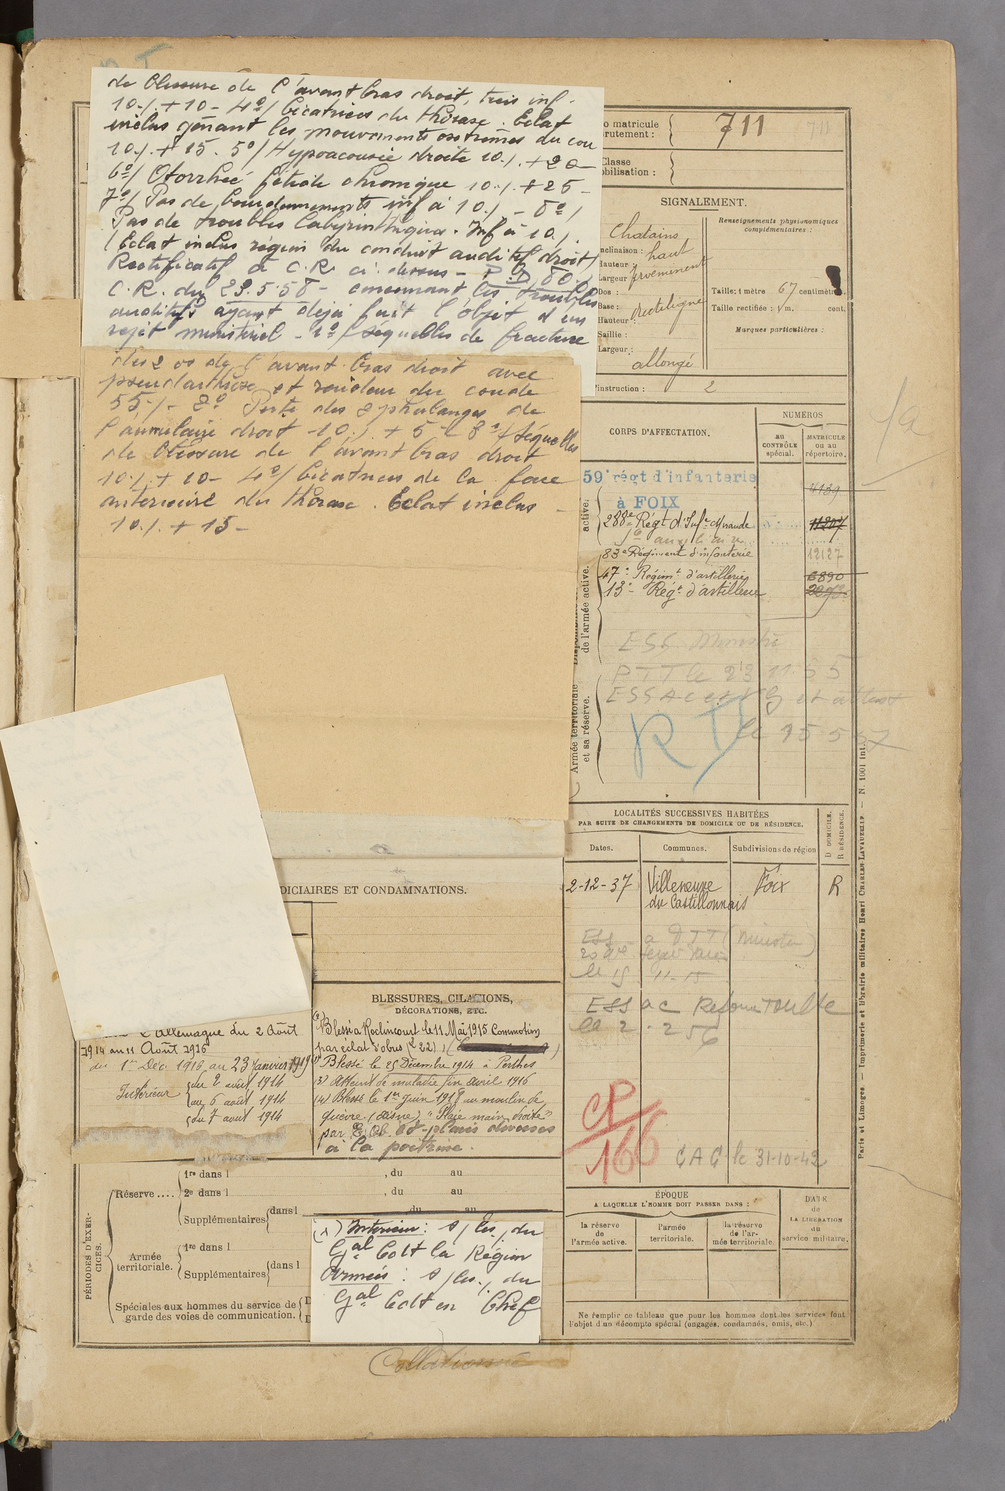 de blessure de l'avant bras droit, très inf.
10% + 10 - 4º/ Cicatrices du thorax. Eclat
inclus gênant les mouvements extrêmes du cou
10% + 15. 5º/ Hypoacousie droite 10% + 20
6º/ Otorrhée fétide chronique 10% + 25 -
7º/ Pas de bourdonnements inf à 10% - 8º/
Pas de troubles labyrinthiques. Inf à 10%
(Eclat inclus région du conduit auditif droit)
Rectificatif à C.R. ci dessus - P.D. 80%
C.R. du 29.5.58 - concernant les troubles
auditifs ayant déjà fait l'objet d'un
rejet ministériel - 1º/ Séquelles de fracture
des 2 os de l'avant-bras droit avec
pseudarthrose et raideur du coude
55% - 2º Perte des 2 phalanges de
l'annulaire droit 10% + 5 - 3º/ Séquelles
de blessure de l'avant bras droit
10% + 10 - 4º/ Cicatrices de la face
antérieure du thorax. Eclat inclus -
10% + 15 -
o matricule
rutement :
711
Classe
obilisation :
SIGNALEMENT.
Renseignements physionomiques
complémentaires :
Chatains
nclinaison : haut
Hauteur :
Largeur : proéminent
Dos :
Base : rectiligne
Hauteur :
Saillie :
Largeur :
allongé
Taille : 1 mètre 67 centimèt
Taille rectifiée : 1 m. cent.
Marques particulières :
'instruction : 2
CORPS D'AFFECTATION.
NUMÉROS
au
CONTRÔLE
spécial.
MATRICULE
ou au
répertoire.
active.
59e régt d'infanterie
à FOIX
4139
288e Régt d'Infie Mirande
11207
83e Régiment d'infanterie
12127
47e Régimt d'artillerie
6890
13e Régt d'artillerie
de l'armée active.
Armée territoriale
et sa réserve.
PTT le 23 11 55
R
le 15 5 57
LOCALITÉS SUCCESSIVES HABITÉES
PAR SUITE DE CHANGEMENTS DE DOMICILE OU DE RÉSIDENCE.
Dates.
Communes.
Subdivisions de région
D DOMICILE.
R RÉSIDENCE.
2-12-37
Villeneuve
du Castillonnais
Foix
R
ESS ac Reforme Toulse
le 2.2 56
CP
166
CAC le 31-10-42
DICIAIRES ET CONDAMNATIONS.
BLESSURES, CITATIONS,
DÉCORATIONS, ETC.
Blessé à Roclincourt le 11 Mai 1915 Commotion
par éclat d'obus
Blessé le 25 Décembre 1914 à Perthes
(3) Atteint de maladie fin avril 1916
(4) Blessé le 1er juin 1918 au moulin de
(Aisne) "Plaie main droite"
par E. Ob. et plaies diverses
à la poitrine.
l'Allemagne du 2 Août
1914 au 11 Août 1916
du 1er Déc 1916 au 23 janvier 1919
Intérieur
du 2 août 1914
au 6 août 1914
du 7 août 1914
PÉRIODES D'EXER-
CICES.
Réserve....
1re dans l , du au
2e dans l , du au
Supplémentaires dans l du au
Armée
territoriale.
1re dans l
Supplémentaires dans l
Spéciales aux hommes du service de
garde des voies de communication.
(x) Intérieur : s/les, du
Gal Cdt la Région
Armées : s/les, du
Gal Cdt en Chef
ÉPOQUE
A LAQUELLE L'HOMME DOIT PASSER DANS :
la réserve
de l'armée active.
l'armée
territoriale.
la réserve
de l'ar-
mée territoriale.
DATE
de
LA LIBÉRATION
du
service militaire.
Ne remplir ce tableau que pour les hommes dont les services font
l'objet d'un décompte spécial (engagés, condamnés, omis, etc.)
Collationné
Paris et Limoges. — Imprimerie et librairie militaires Henri CHARLES-LAVAUZELLE. — N. 1001 int.